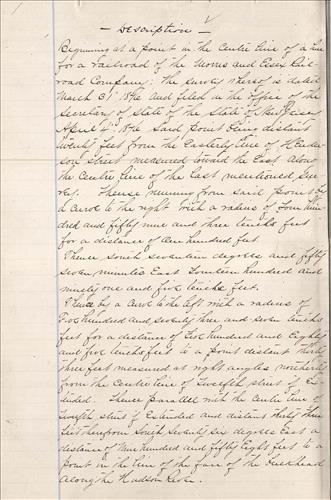 — Description —
Beginning at a point in the Centre line of a line
for a railroad of the Morris and Essex Rail-
road Company: The survey whereof is dated
March 31st 1872 and filed in the Office of the
Secretary of State of the State of New Jersey
April 4th 1872 said point being distant
twenty feet from the Easterly line of Hender-
son street measured toward the East along
the Centre line of the last mentioned Sur-
vey. Thence running from said point by
a curve to the right with a radius of Four Hun-
dred and fifty nine and three tenths feet
for a distance of One hundred feet.
Thence South seventeen degrees and fifty
seven minutes East fourteen hundred and
ninety one and five tenths feet.
Thence by a curve to the left with a radius of
Five hundred and seventy three and seven tenths
feet for a distance of Five hundred and Eighty
and five tenths feet to a point distant thirty
three feet measured at right angles northerly
from the Centre line of Twelfth street if Ex-
tended. Thence parallel with the Centre line of
twelfth street if Extended and distant thirty three
feet therefrom South seventy six degrees East a
distance of Nine hundred and fifty Eight feet to a
point in the line of the face of the Bulkhead
along the Hudson River.